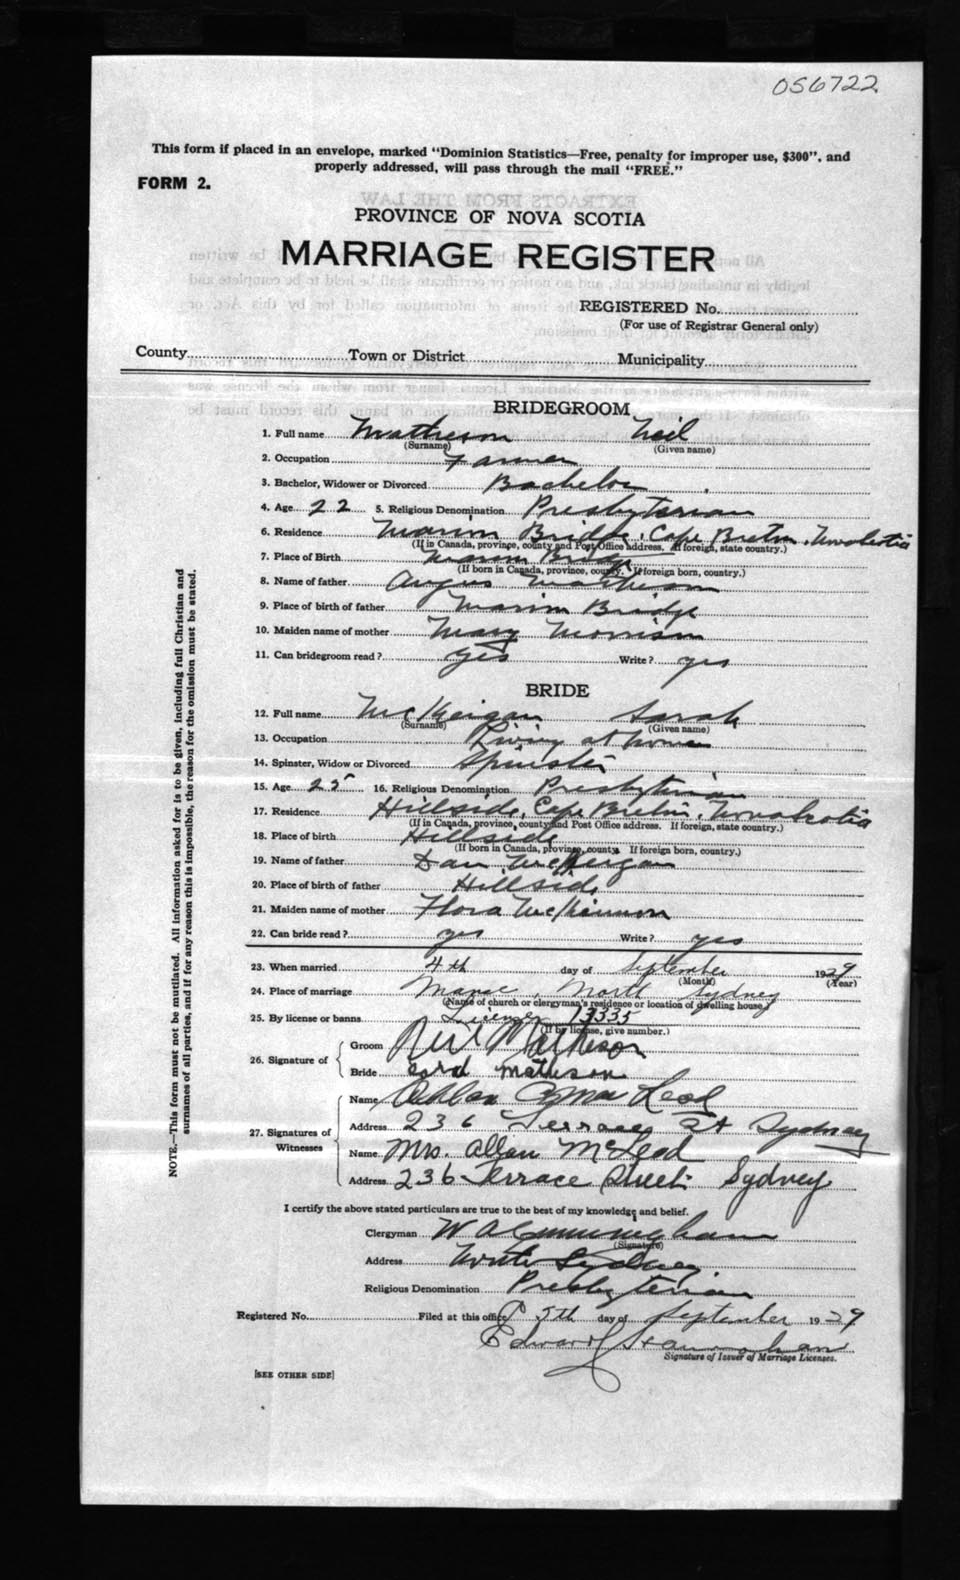 056722
This form if placed in an envelope, marked "Dominion Statistics—Free, penalty for improper use, $300", and
properly addressed, will pass through the mail "FREE."
FORM 2.
PROVINCE OF NOVA SCOTIA
MARRIAGE REGISTER
REGISTERED No.
(For use of Registrar General only)
County Town or District Municipality
BRIDEGROOM
1. Full name Matheson Neil
(Surname) (Given name)
2. Occupation Farmer
3. Bachelor, Widower or Divorced Bachelor
4. Age 22 5. Religious Denomination Presbyterian
6. Residence Marion Bridge, Cape Breton, Nova Scotia
(If in Canada, province, county and Post Office address. If foreign, state country.)
7. Place of Birth Marion Bridge
(If born in Canada, province, county. If foreign born, country.)
8. Name of father Angus Matheson
9. Place of birth of father Marion Bridge
10. Maiden name of mother Mary Morrison
11. Can bridegroom read? yes Write? yes
BRIDE
12. Full name McKeigan Sarah
(Surname) (Given name)
13. Occupation Living at home
14. Spinster, Widow or Divorced Spinster
15. Age 25 16. Religious Denomination Presbyterian
17. Residence Hillside, Cape Breton, Nova Scotia
(If in Canada, province, county and Post Office address. If foreign, state country.)
18. Place of birth Hillside
(If born in Canada, province, county. If foreign born, country.)
19. Name of father Dan McKeigan
20. Place of birth of father Hillside
21. Maiden name of mother Flora McKinnon
22. Can bride read? yes Write? yes
23. When married 4th day of September 1929
(Month) (Year)
24. Place of marriage Manse, North Sydney
(Name of church or clergyman's residence or location of dwelling house)
25. By license or banns License 13335
(If by license, give number.)
26. Signature of
Groom Neil Matheson
Bride Matheson
27. Signatures of Witnesses
Name Leod
Address 236 Terrace St Sydney
Name Mrs. Allan McLeod
Address 236 Terrace Street Sydney
I certify the above stated particulars are true to the best of my knowledge and belief.
Clergyman W A Cunningham
(Signature)
Address North Sydney
Religious Denomination Presbyterian
Registered No. Filed at this office 5th day of September 1929
Edward
Signature of Issuer of Marriage Licenses.
[SEE OTHER SIDE]
NOTE.—This form must not be mutilated. All information asked for is to be given, including full Christian and
surnames of all parties, and if for any reason this is impossible, the reason for the omission must be stated.